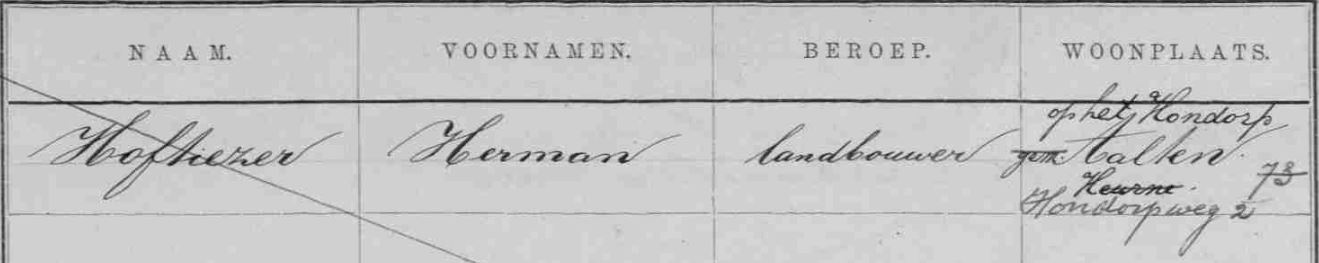 NAAM. VOORNAMEN. BEROEP. WOONPLAATS.
op het Hondorp
Hoftiezer Herman landbouwer gem. Aalten.
Heurne. 73
Hondorpweg 2